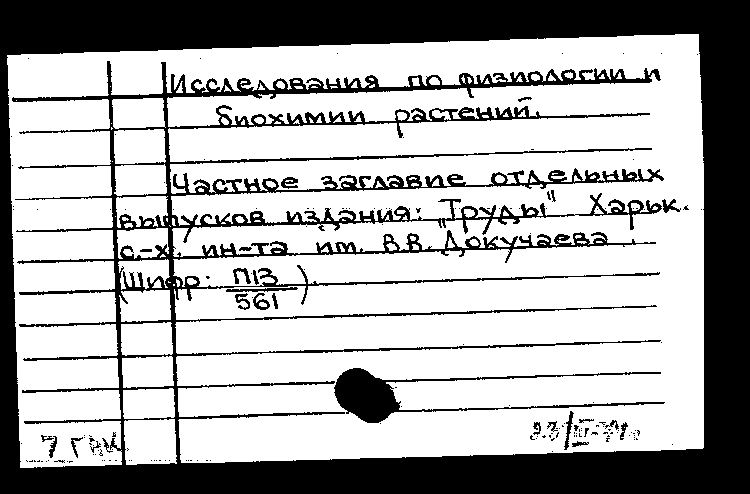 Исследования по физиологии и
биохимии растений.
Частное заглавие отдельных
выпусков издания: „Труды" Харьк.
с.-х. ин-та им. В.В. Докучаева.
(Шифр: П13
561).
7